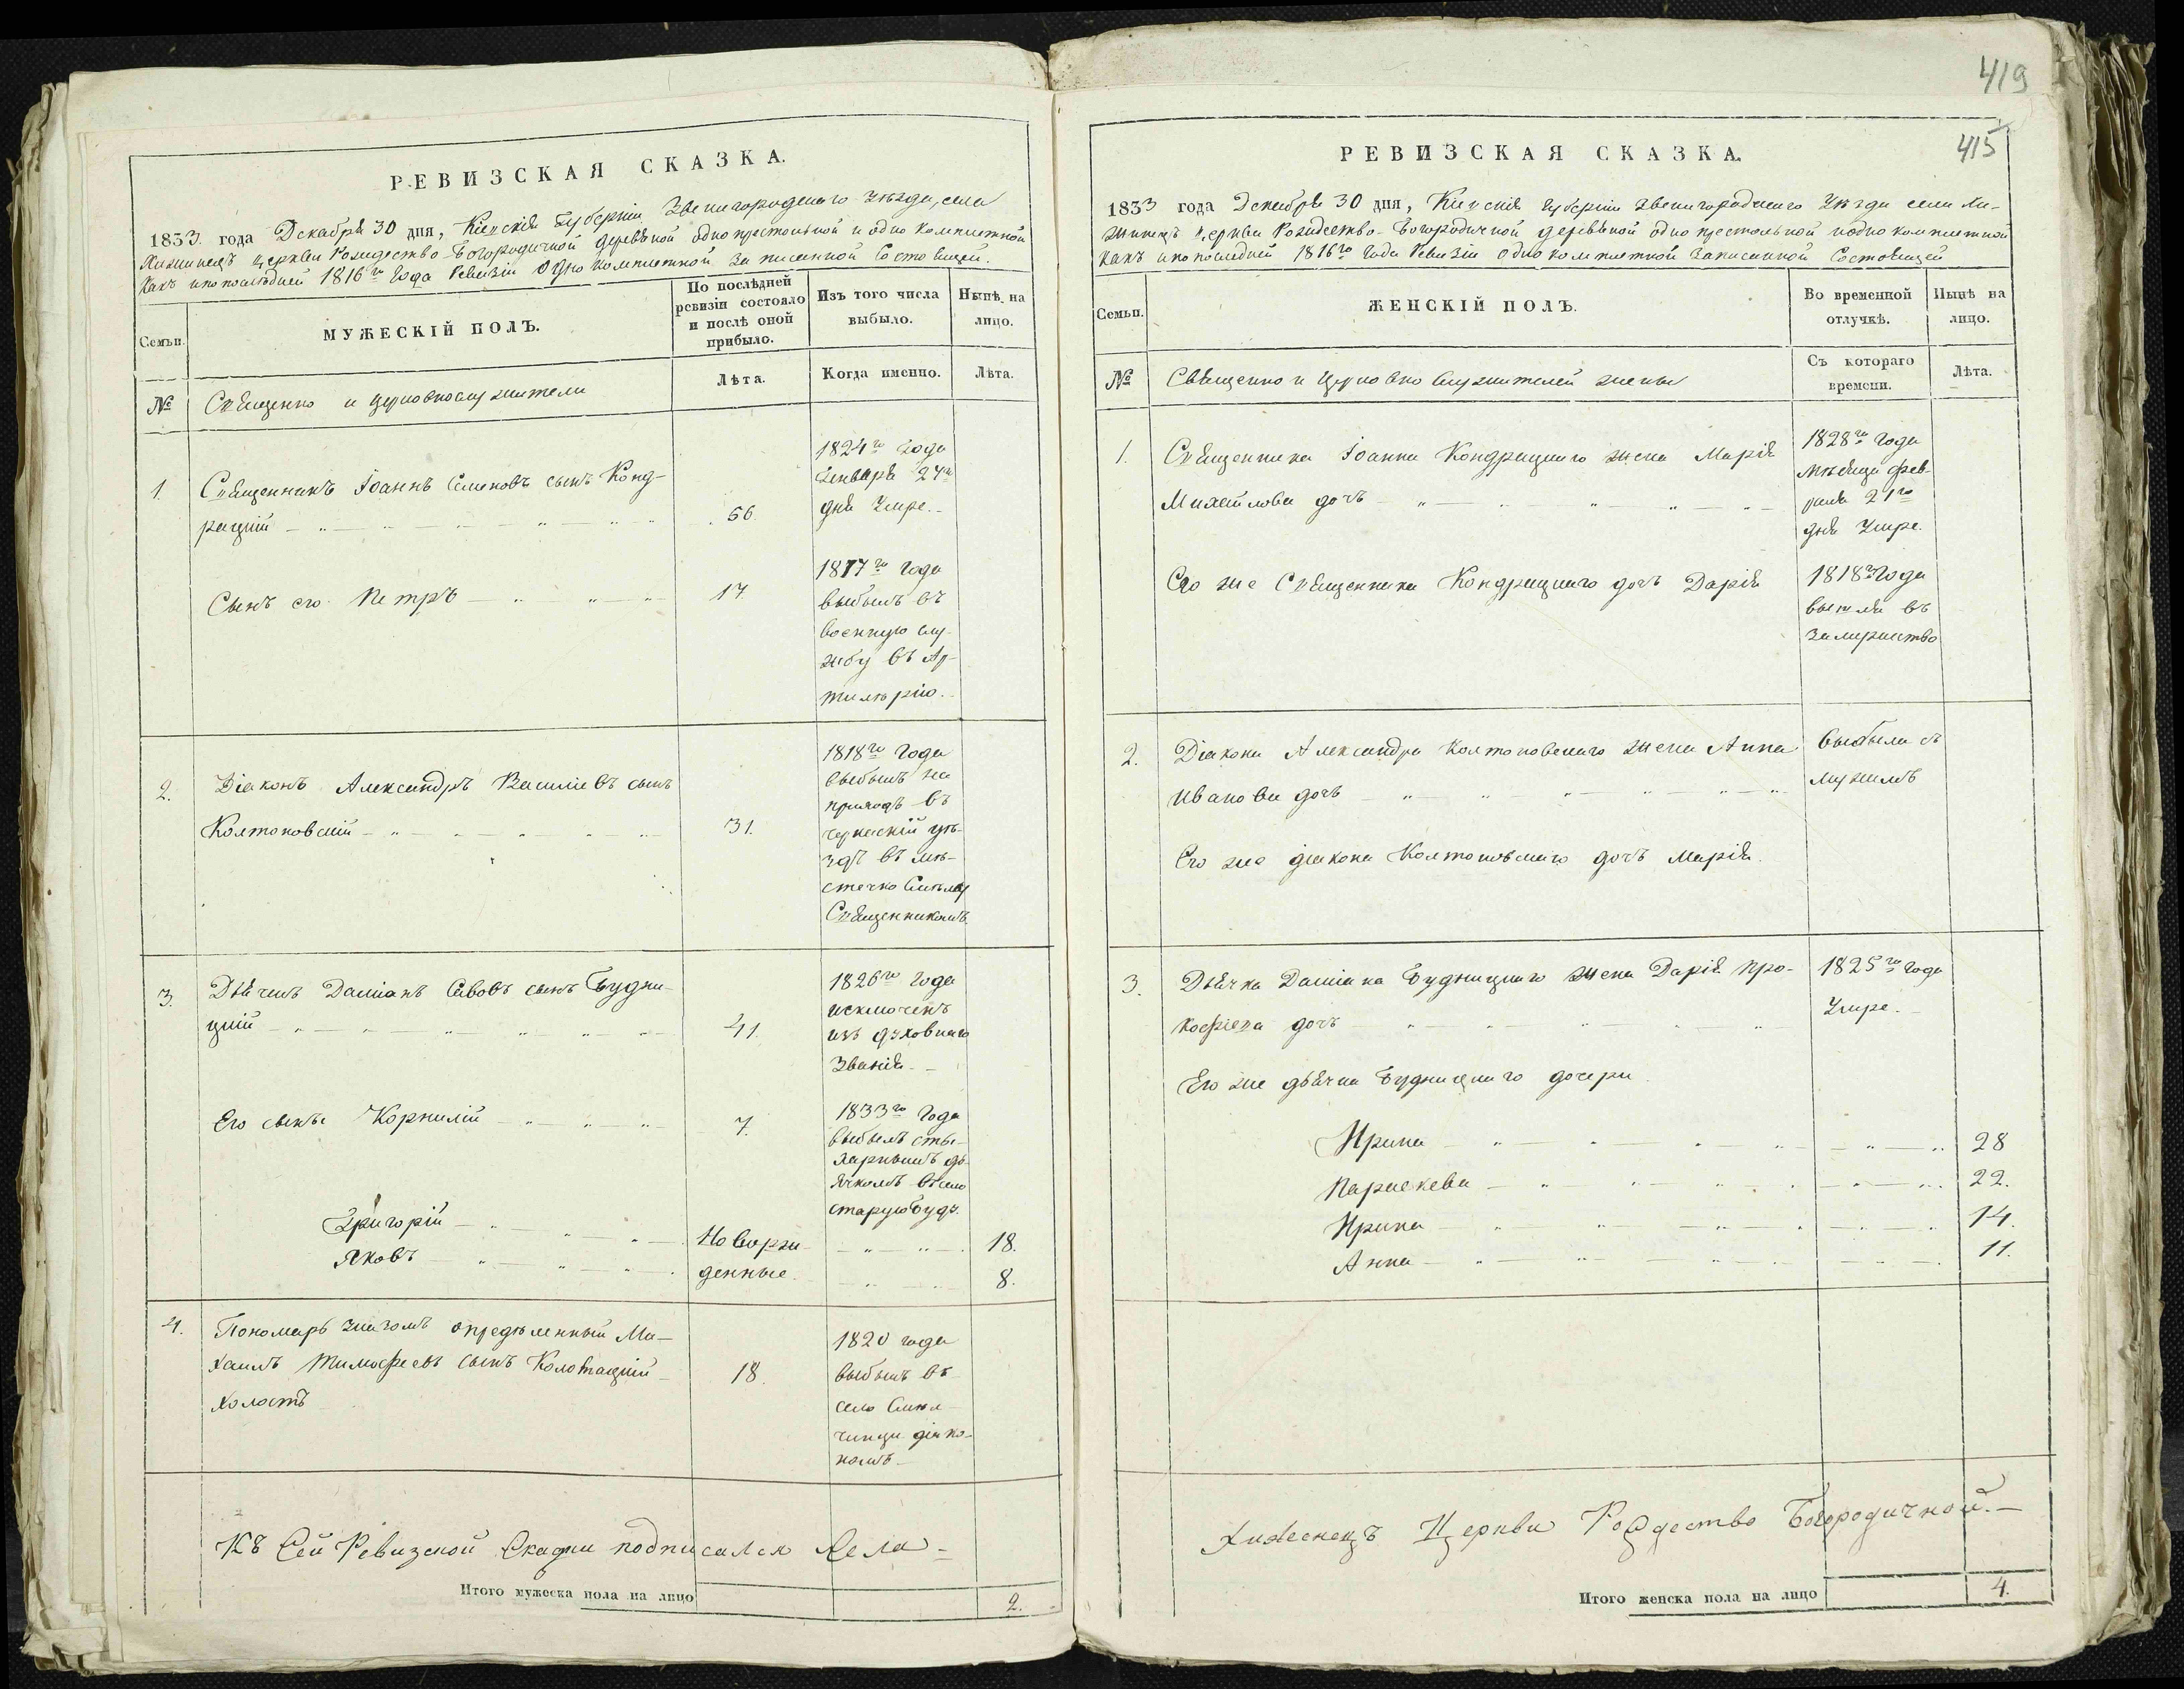 РЕВИЗСКАЯ СКАЗКА.
1833 года Декабря 30 дня, Кіевскія Губерніи Звенигородскаго уѣзда, села
Хижинецъ церкви Рождество-Богородичной деревяной однопрестольной и однокомплетной
какъ и по послѣдней 1816го года Ревизіи однокомплетной записанной состоящей.
Семьи.
МУЖЕСКІЙ ПОЛЪ.
По послѣдней ревизіи состояло и послѣ оной прибыло.
Изъ того числа выбыло.
Нынѣ на лицо.
№
Священно и церковнослужители
Лѣта.
Когда именно.
Лѣта.
1.
Священникъ Іоаннъ Семеновъ сынъ Конд-
рацкій
56.
1824го года
Января 24го
дня умре.
Сынъ его Петръ
17
1817го года
выбылъ въ
военную слу-
жбу въ Ар-
тилерію.
2.
Діаконъ Александръ Василіевъ сынъ
Колтоновскій
31.
1818го года
выбылъ на
приходъ въ
черкаскій уѣ-
здъ въ мѣ-
стечко Смѣлу
Священникомъ
3.
Дьячекъ Даміанъ Савовъ сынъ Будни-
цкій
41.
1826го года
исключенъ
изъ духовнаго
званія
Его сыны Корнилій
7.
1833го года
выбылъ
дь-
ячкомъ въ село
старую Буду.
Григорій
Новорж-
18.
Яковъ
денные.
8.
4.
Пономарь указомъ опредѣленный Ми-
хаилъ Тимофеевъ сынъ
холостъ
18.
1820 года
выбылъ въ
село
діако-
номъ
Къ сей Ревизской Сказки подписался Села
Итого мужеска пола на лицо
2.
419
415
РЕВИЗСКАЯ СКАЗКА.
1833 года Декабря 30 дня, Кіевскія губерніи звенигородскаго уѣзда села Хи-
жинецъ церкви Рождество-Богородичной деревяной однопрестольной и однокомплетной
какъ и по послѣдней 1816го года Ревизіи однокомплетной записанной состоящей
Семьи.
ЖЕНСКІЙ ПОЛЪ.
Во временной отлучкѣ.
Нынѣ на лицо.
№
Священно и Церковно служителей жены
Съ котораго времени.
Лѣта.
1.
Священника Іоанна Кондрацкаго жена Марія
Михайлова дочь
1828го года
мѣсяца фев-
раля 21го
дня умре.
Его же Священника Кондрацкаго дочь Дарія
1818го года
вышла въ
замужство
2.
Діакона Александра Колтоновскаго жена Анна
Иванова дочь
выбыла съ
мужемъ
Его же діакона Колтоновскаго дочь Марія.
3.
Дьячка Даміана Будницкаго жена Дарія Про-
кофіева дочь
1825го года
умре.
Его же дьячка Будницкаго дочери
Ирина
28
Параскева
22.
Ирина
14.
Анна
11.
Хижинецъ Церкви Рождество Богородичной.
Итого женска пола на лицо
4.